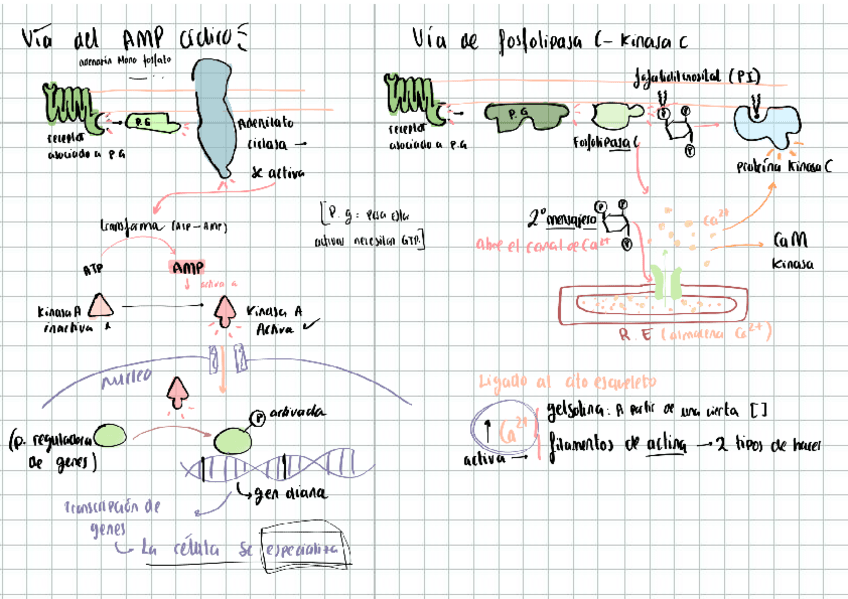 Vía del AMP cíclico:
adenosin Mono fosfato
P.G
receptor
asociado a P.G
Adenilato
ciclasa →
se activa
transforma (ATP → AMP)
[P.g: para estar
activas necesitan GTP.]
ATP
AMP
↓ activa a
Kinasa A
inactiva
Kinasa A
Activa ✓
núcleo
(p. reguladora
de genes)
P
activada
gen diana
Transcripción de
genes
La célula se especializa
Vía de fosfolipasa C - Kinasa C
fosfatidilinositol (PI)
receptor
asociado a P.G
P.G
Fosfolipasa C
P
P
P
proteína Kinasa C
2º mensajero
P
P
P
Abre el canal de Ca2+
Ca2+
CaM
Kinasa
R.E (almacena Ca2+)
Ligado al citoesqueleto
↑ Ca2+
activa →
gelsolina: A partir de una cierta []
filamentos de actina → 2 tipos de hacer